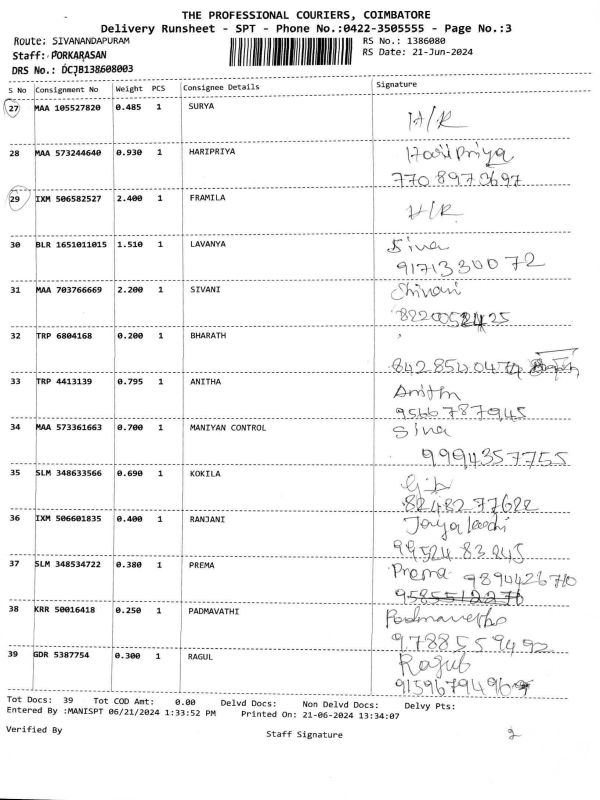 THE PROFESSIONAL COURIERS, COIMBATORE
Delivery Runsheet - SPT - Phone No.:0422-3505555 - Page No.:3
Route: SIVANANDAPURAM RS No.: 1386080
Staff: PORKARASAN RS Date: 21-Jun-2024
DRS No.: DCJB138608003
S No Consignment No Weight PCS Consignee Details Signature
27 MAA 105527820 0.485 1 SURYA H/R
28 MAA 573244640 0.930 1 HARIPRIYA HariPriya
7708970697
29 IXM 506582527 2.400 1 FRAMILA H/R
30 BLR 1651011015 1.510 1 LAVANYA Siva
9171330072
31 MAA 703766669 2.200 1 SIVANI Shivani
32 TRP 6804168 0.200 1 BHARATH
33 TRP 4413139 0.795 1 ANITHA Anitha
9566787945
34 MAA 573361663 0.700 1 MANIYAN CONTROL Siva
9994357755
35 SLM 348633566 0.690 1 KOKILA
8248277622
36 IXM 506601835 0.400 1 RANJANI
9952483245
37 SLM 348534722 0.380 1 PREMA Prema 9894426710
38 KRR 50016418 0.250 1 PADMAVATHI
9788559492
39 GDR 5387754 0.300 1 RAGUL Ragul
Tot Docs: 39 Tot COD Amt: 0.00 Delvd Docs: Non Delvd Docs: Delvy Pts:
Entered By :MANISPT 06/21/2024 1:33:52 PM Printed On: 21-06-2024 13:34:07
Verified By Staff Signature